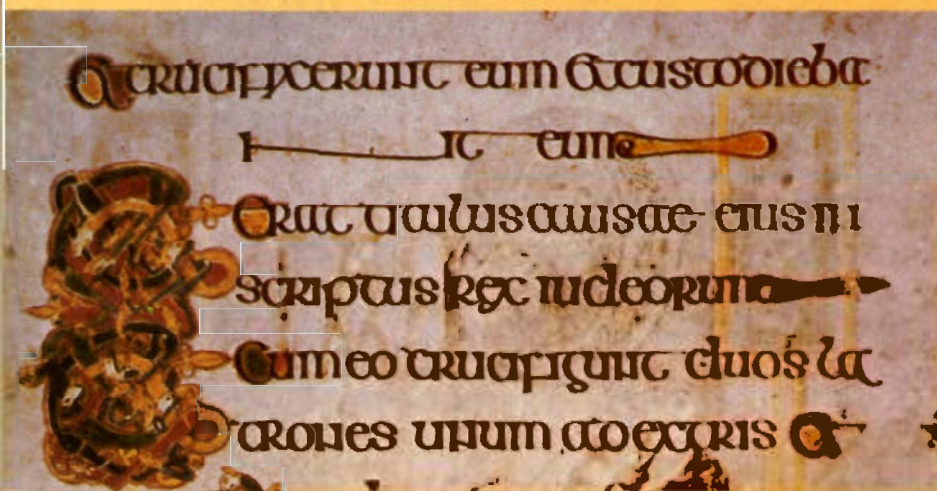 Et crucifixerunt eum et custodieba
nt eum
Erat titulus causae eius in
scriptus rex iudeorum
Cum eo crucifigunt duos la
trones unum a dextris